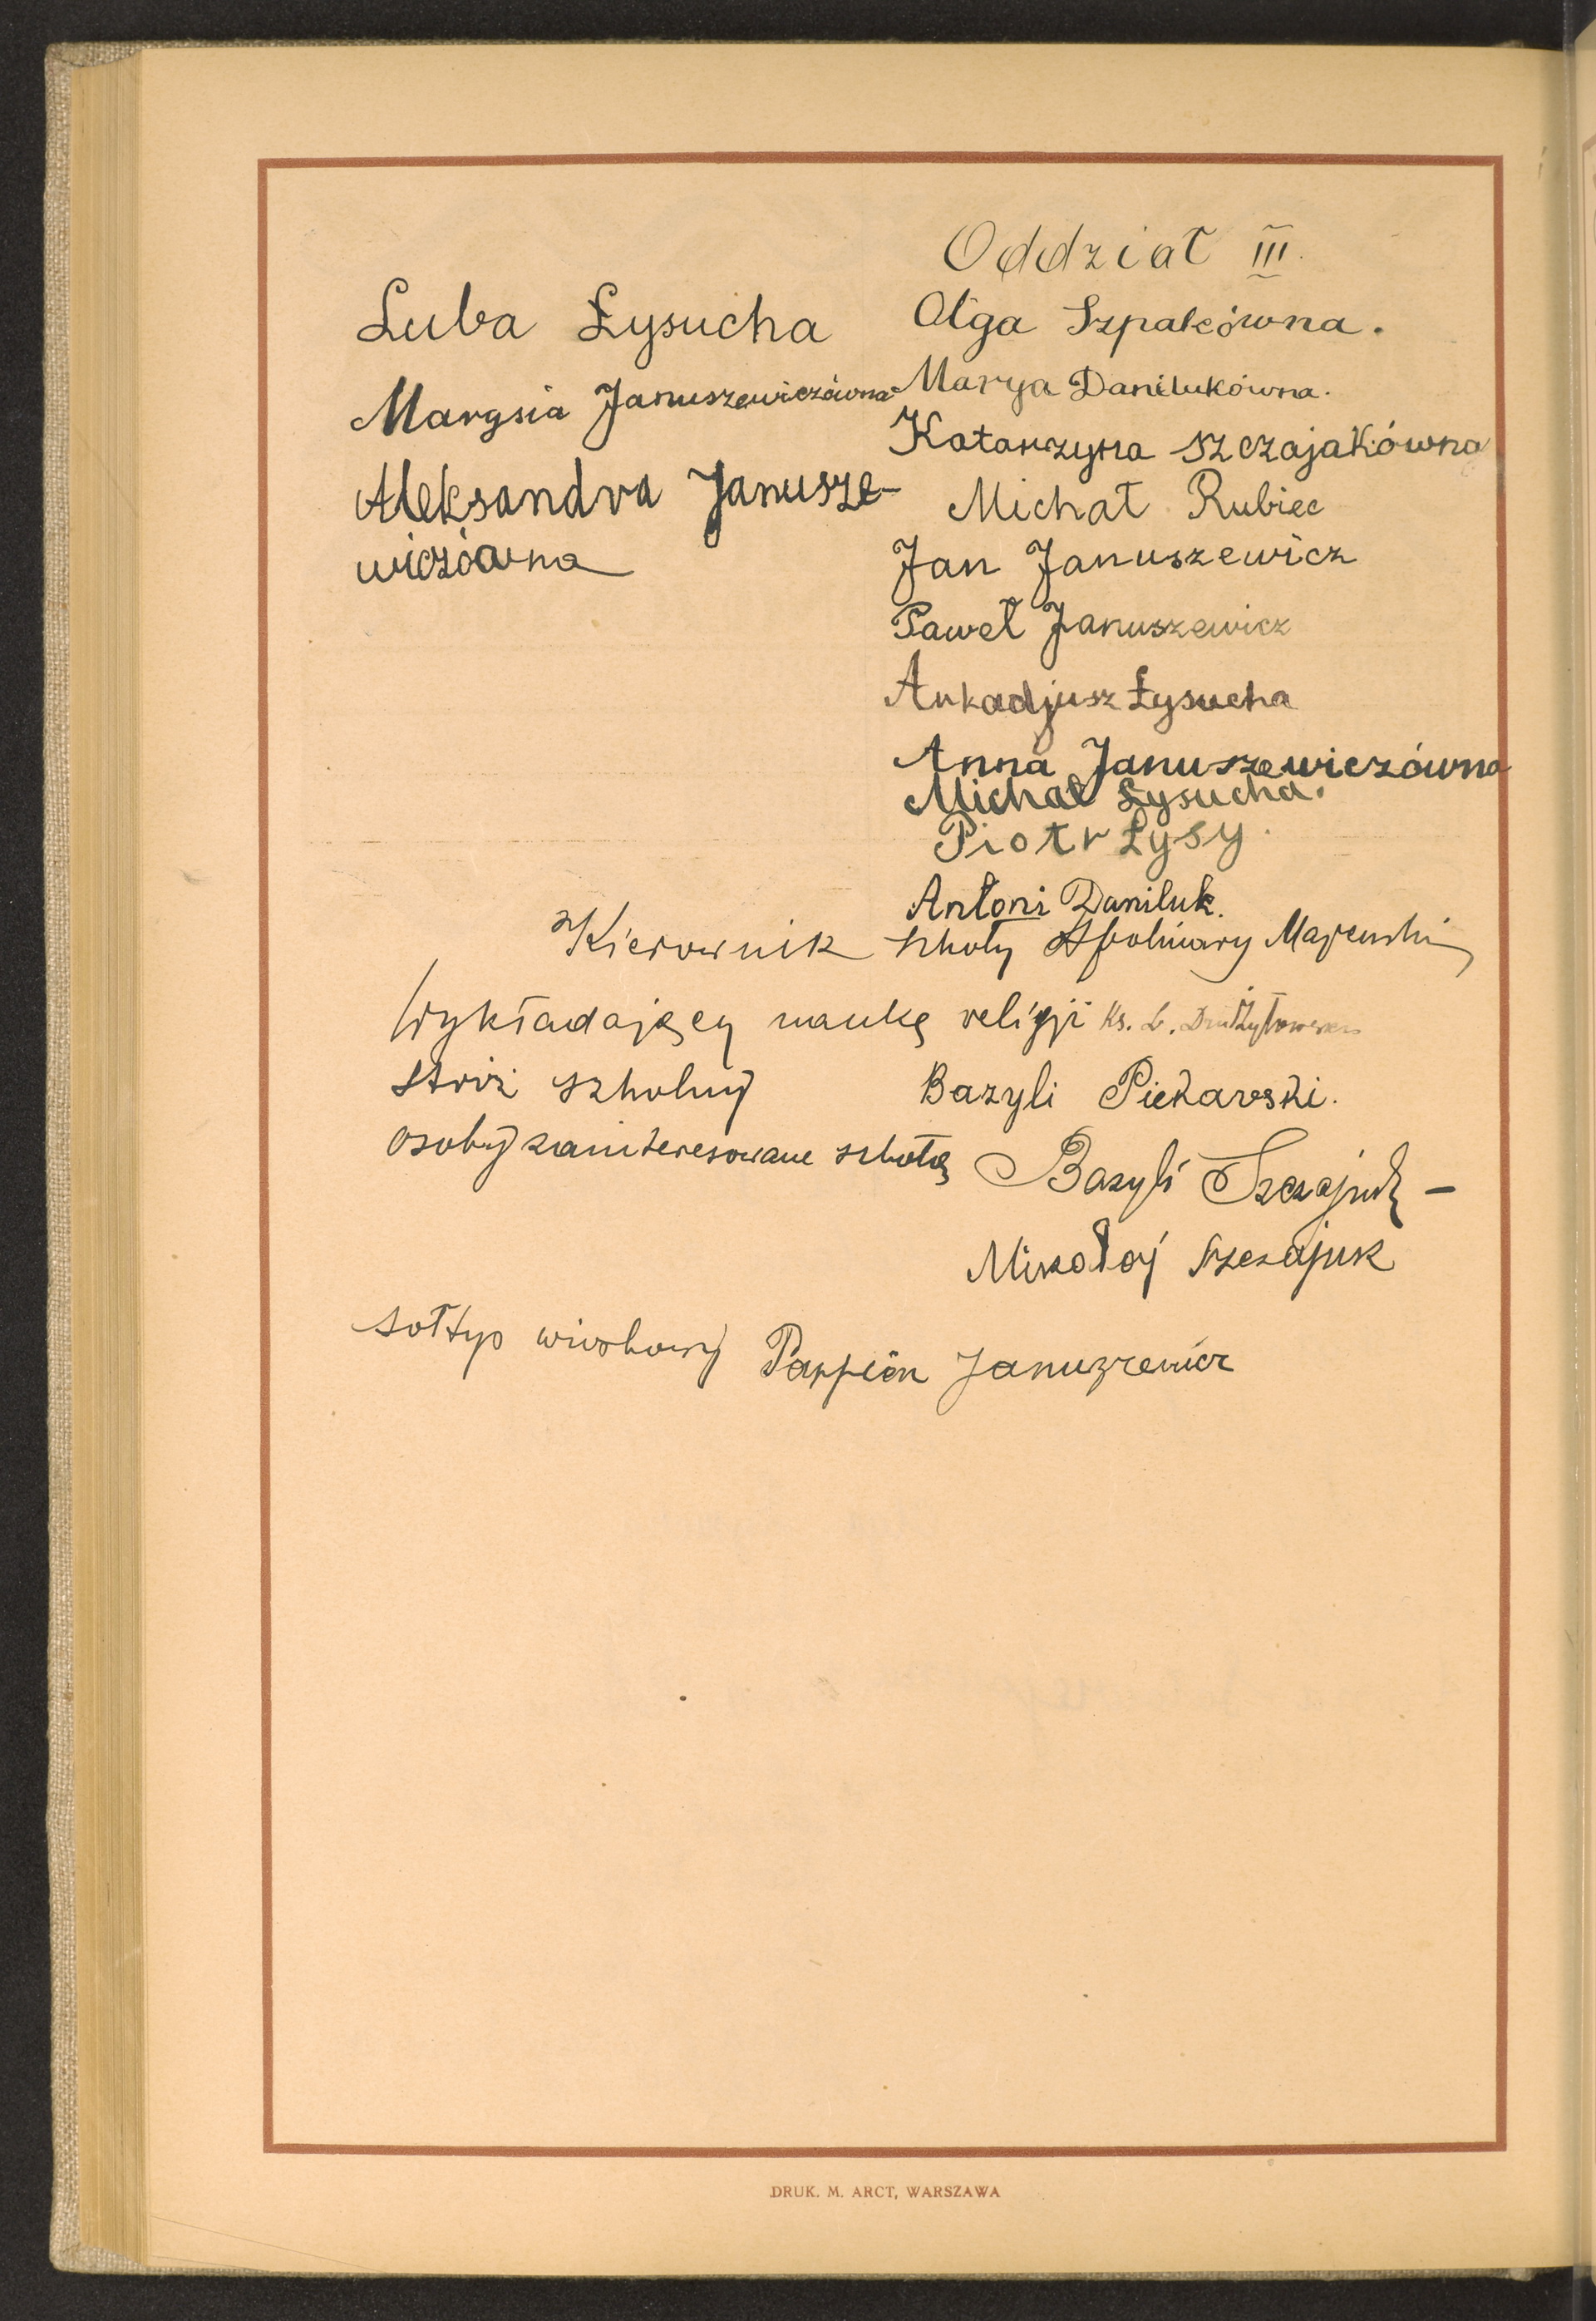 Luba Łysucha
Marysia Januszewiczówna
Aleksandra Janusze-
wiczówna
Oddział III.
Olga Szpakówna.
Marya Danilukówna.
Katarzyna Szczajakówna
Michał Rubiec
Jan Januszewicz
Paweł Januszewicz
Arkadjusz Łysucha
Anna Januszewiczówna
Michał Łysucha.
Piotr Łysy.
Antoni Daniluk.
Kierownik szkoły Apolinary Majewski
Wykładający naukę religji Ks.
Stróż szkolny Bazyli Piekarski.
Osoby zainteresowane szkołą Bazyli Szczajuk -
Mikołaj Szczajuk
Sołtys wioskowy Januszewicz
DRUK. M. ARCT, WARSZAWA